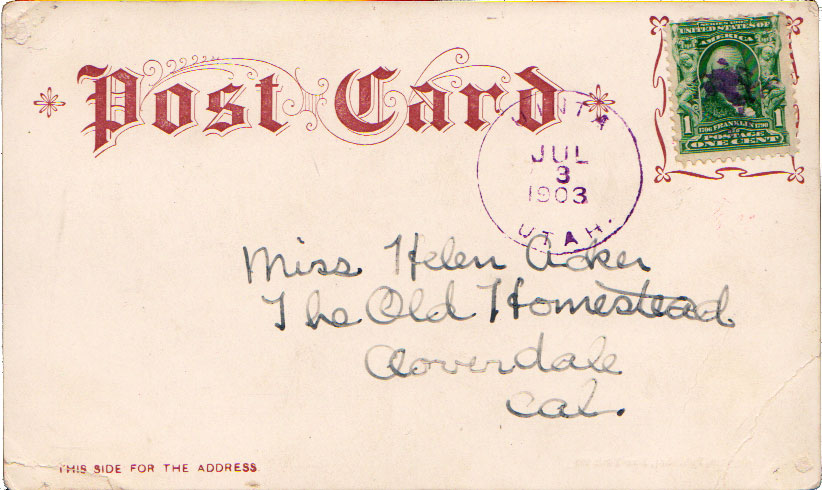 Post Card
SERIES 1902
UNITED STATES OF
AMERICA
1 1706 FRANKLIN 1790 1
POSTAGE
ONE CENT
JUL
3
1903
UTAH.
Miss Helen Acker
The Old Homestead
Cloverdale
Cal.
THIS SIDE FOR THE ADDRESS